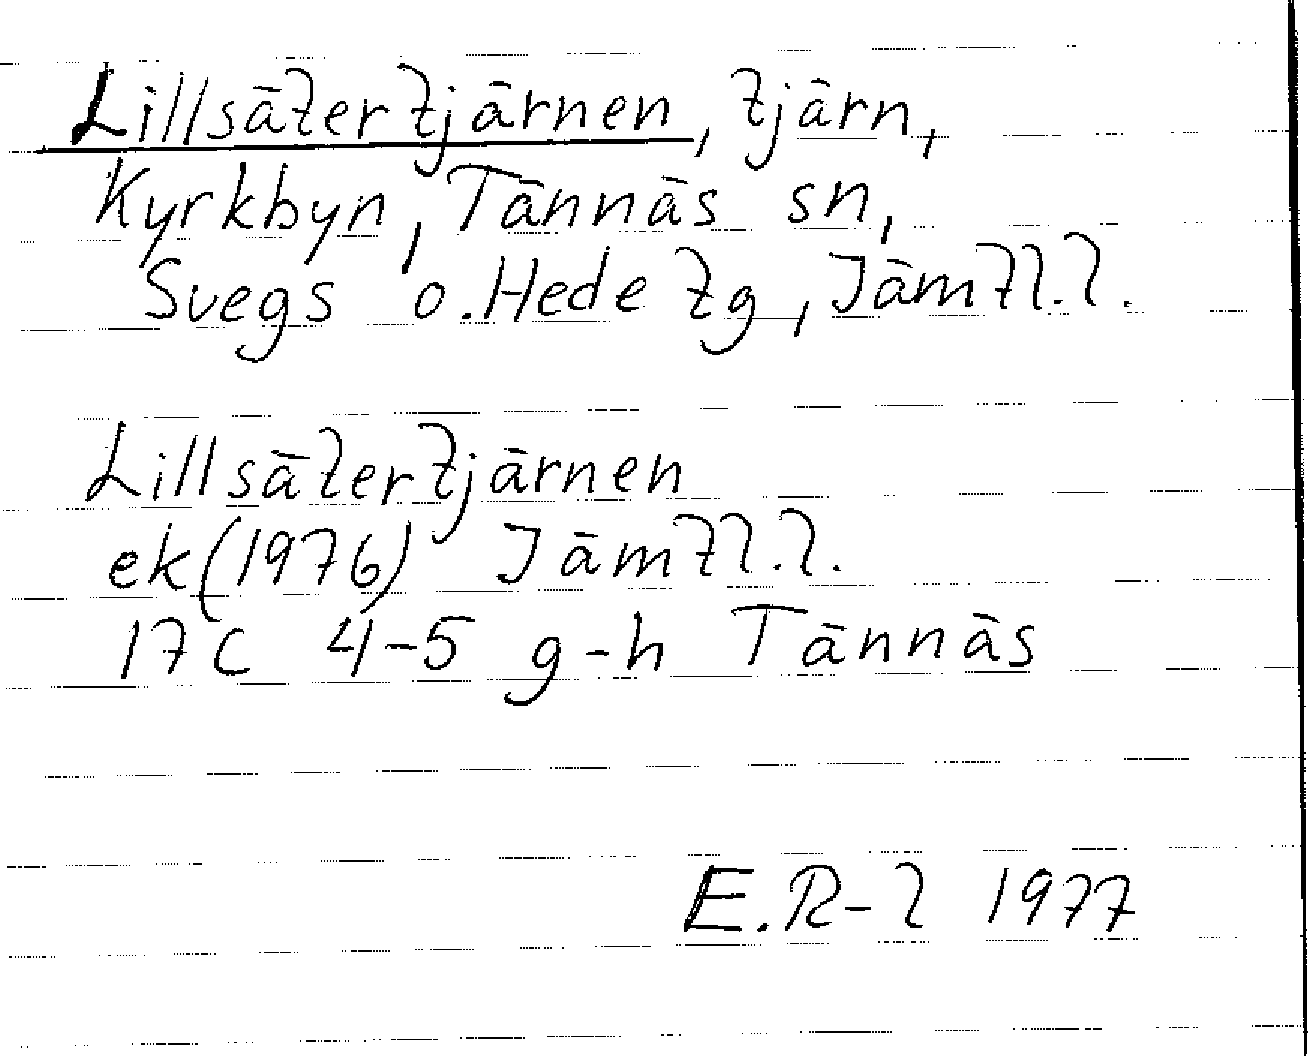 Lillsätertjärnen, tjärn,
Kyrkbyn, Tännäs sn,
Svegs o. Hede tg, Jämtl.l.
Lillsätertjärnen
ek(1976) Jämtl.l.
17C 4-5 g-h Tännäs
E.R-l 1977